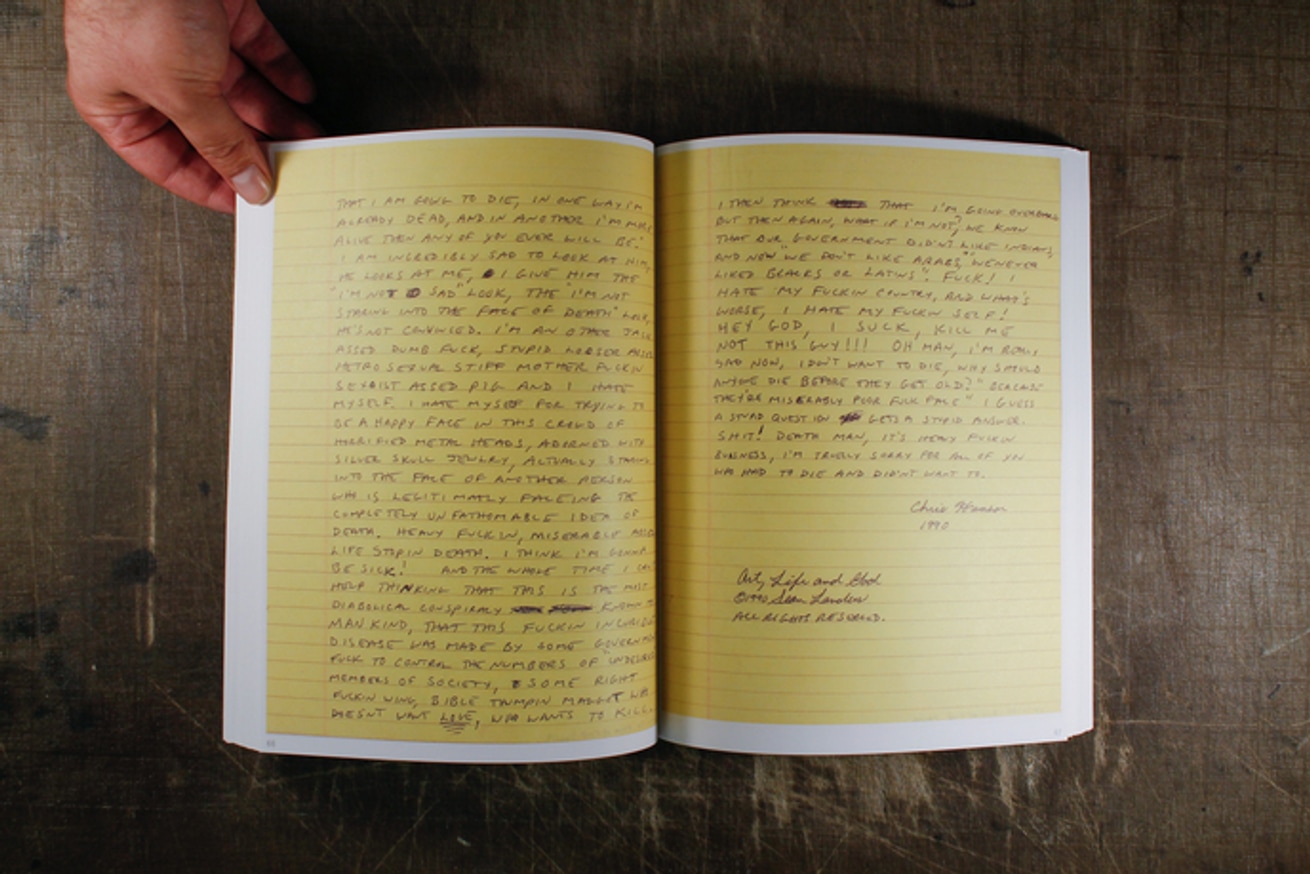 THAT I AM GOING TO DIE, IN ONE WAY I'M
ALREADY DEAD, AND IN ANOTHER I'M MORE
ALIVE THEN ANY OF YOU EVER WILL BE."
I AM INCREDIBLY SAD TO LOOK AT HIM
HE LOOKS AT ME, I GIVE HIM THE
"I'M NOT SAD" LOOK, THE "I'M NOT
STARING INTO THE FACE OF DEATH" LOOK,
HE'S NOT CONVINCED. I'M AN OTHER JACK
ASSED DUMB FUCK, STUPID LOOSER ASSED
HETRO SEXUAL STIFF MOTHER FUCKIN
SEXIST ASSED PIG AND I HATE
MYSELF. I HATE MYSELF FOR TRYING TO
BE A HAPPY FACE IN THIS CROWD OF
HORRIFIED METAL HEADS, ADORNED WITH
SILVER SKULL JEWLRY, ACTUALLY STARING
INTO THE FACE OF ANOTHER PERSON
WHO IS LEGITIMATLY FACEING THE
COMPLETELY UNFATHOMABLE IDEA OF
DEATH. HEAVY FUCKIN, MISERABLE ASSED
LIFE STOPIN DEATH. I THINK I'M GONNA
BE SICK! AND THE WHOLE TIME I CAN
HELP THINKING THAT THIS IS THE MOST
DIABOLICAL CONSPIRACY KNOWN TO
MAN KIND, THAT THIS FUCKIN INCURIBLE
DISEASE WAS MADE BY SOME GOVERNMENT
FUCK TO CONTROL THE NUMBERS OF "UNDESIRED
MEMBERS OF SOCIETY, SOME RIGHT
FUCKIN WING, BIBLE THUMPIN MAGGOT WHO
DOESNT WANT LOVE, WHO WANTS TO KILL.
I THEN THINK THAT I'M GOING OVERBOARD
BUT THEN AGAIN, WHAT IF I'M NOT? WE KNOW
THAT OUR GOVERNMENT DIDN'T LIKE INDIANS,
AND NOW "WE DON'T LIKE ARABS," "WENEVER
LIKED BLACKS OR LATINS". FUCK! I
HATE MY FUCKIN COUNTRY, AND WHAT'S
WORSE, I HATE MY FUCKIN SELF!
HEY GOD, I SUCK, KILL ME
NOT THIS GUY!!! OH MAN, I'M REALLY
SAD NOW, I DON'T WANT TO DIE, WHY SHOULD
ANYONE DIE BEFORE THEY GET OLD? "BECAUSE
THEY'RE MISERABLY POOR FUCK FACE" I GUESS
A STUPID QUESTION GETS A STUPID ANSWER.
SHIT! DEATH MAN, IT'S HEAVY FUCKIN
BUSNESS, I'M TRUELLY SORRY FOR ALL OF YOU
WHO HAD TO DIE AND DIDN'T WANT TO.
Chris Hamson
1990
Art, Life and God
©1990 Sean Landers
ALL RIGHTS RESERVED.